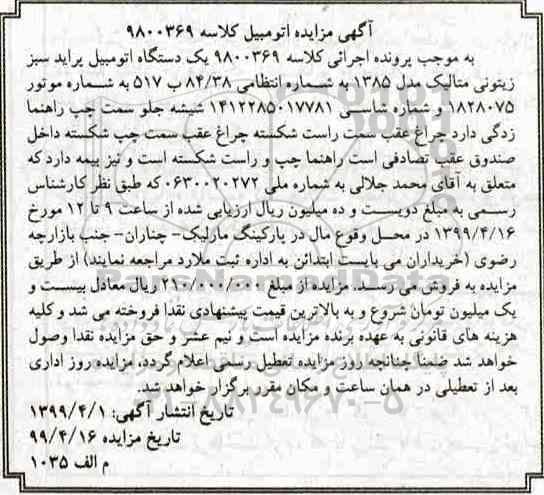 آگهی مزایده اتومبیل کلاسه ۹۸۰۰۳۶۹
به موجب پرونده اجرائی کلاسه ۹۸۰۰۳۶۹ یک دستگاه اتومبیل پراید سبز
زیتونی متالیک مدل ۱۳۸۵ به شماره انتظامی ۸۴/۳۸ ب ۵۱۷ به شماره موتور
۱۸۲۸۰۷۵ و شماره شاسی ۱۴۱۲۲۸۵۰۱۷۷۸۱ شیشه جلو سمت چپ راهنما
زدگی دارد چراغ عقب سمت راست شکسته چراغ عقب سمت چپ شکسته داخل
صندوق عقب تصادفی است راهنما چپ و راست شکسته است و نیز بیمه دارد که
متعلق به آقای محمد جلالی به شماره ملی ۰۶۳۰۰۲۰۲۷۲ که طبق نظر کارشناس
رسمی به مبلغ دویست و ده میلیون ریال ارزیابی شده از ساعت ۹ تا ۱۲ مورخ
۱۳۹۹/۴/۱۶ در محل وقوع مال در پارکینگ مارلیک- چناران- جنب بازارچه
رضوی (خریداران می بایست ابتدائن به اداره ثبت ملارد مراجعه نمایند) از طریق
مزایده به فروش می رسد. مزایده از مبلغ ۲۱۰/۰۰۰/۰۰۰ ریال معادل بیست و
یک میلیون تومان شروع و به بالاترین قیمت پیشنهادی نقدا فروخته می شد و کلیه
هزینه های قانونی به عهده برنده مزایده است و نیم عشر و حق مزایده نقدا وصول
خواهد شد ضمنا چنانچه روز مزایده تعطیل رسمی اعلام گردد، مزایده روز اداری
بعد از تعطیلی در همان ساعت و مکان مقرر برگزار خواهد شد.
تاریخ انتشار آگهی: ۱۳۹۹/۴/۱
تاریخ مزایده ۹۹/۴/۱۶
م الف ۱۰۳۵
ParsNamadData
۰۲۱-۸۸۳۴۹۶۷۰-۵